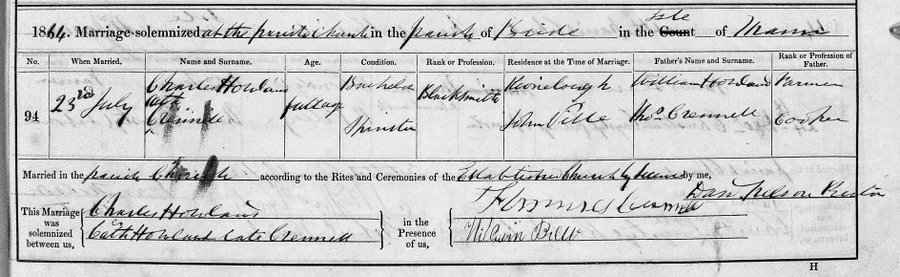 1864. Marriage solemnized at the parish Church in the parish of Bride in the Isle of Mann
No. When Married. Name and Surname. Age. Condition. Rank or Profession. Residence at the Time of Marriage. Father's Name and Surname. Rank or Profession of Father.
94 23rd July Charles Howland full age Bachelor Blacksmith William Howland Farmer
Crennell Spinster John Ville Thos Crennell Cooper
Married in the parish Church according to the Rites and Ceremonies of the Established Church by me,
This Marriage was solemnized between us, Charles Howland in the Presence of us, Thomas
Cath Howland late Crennell William Brew
H